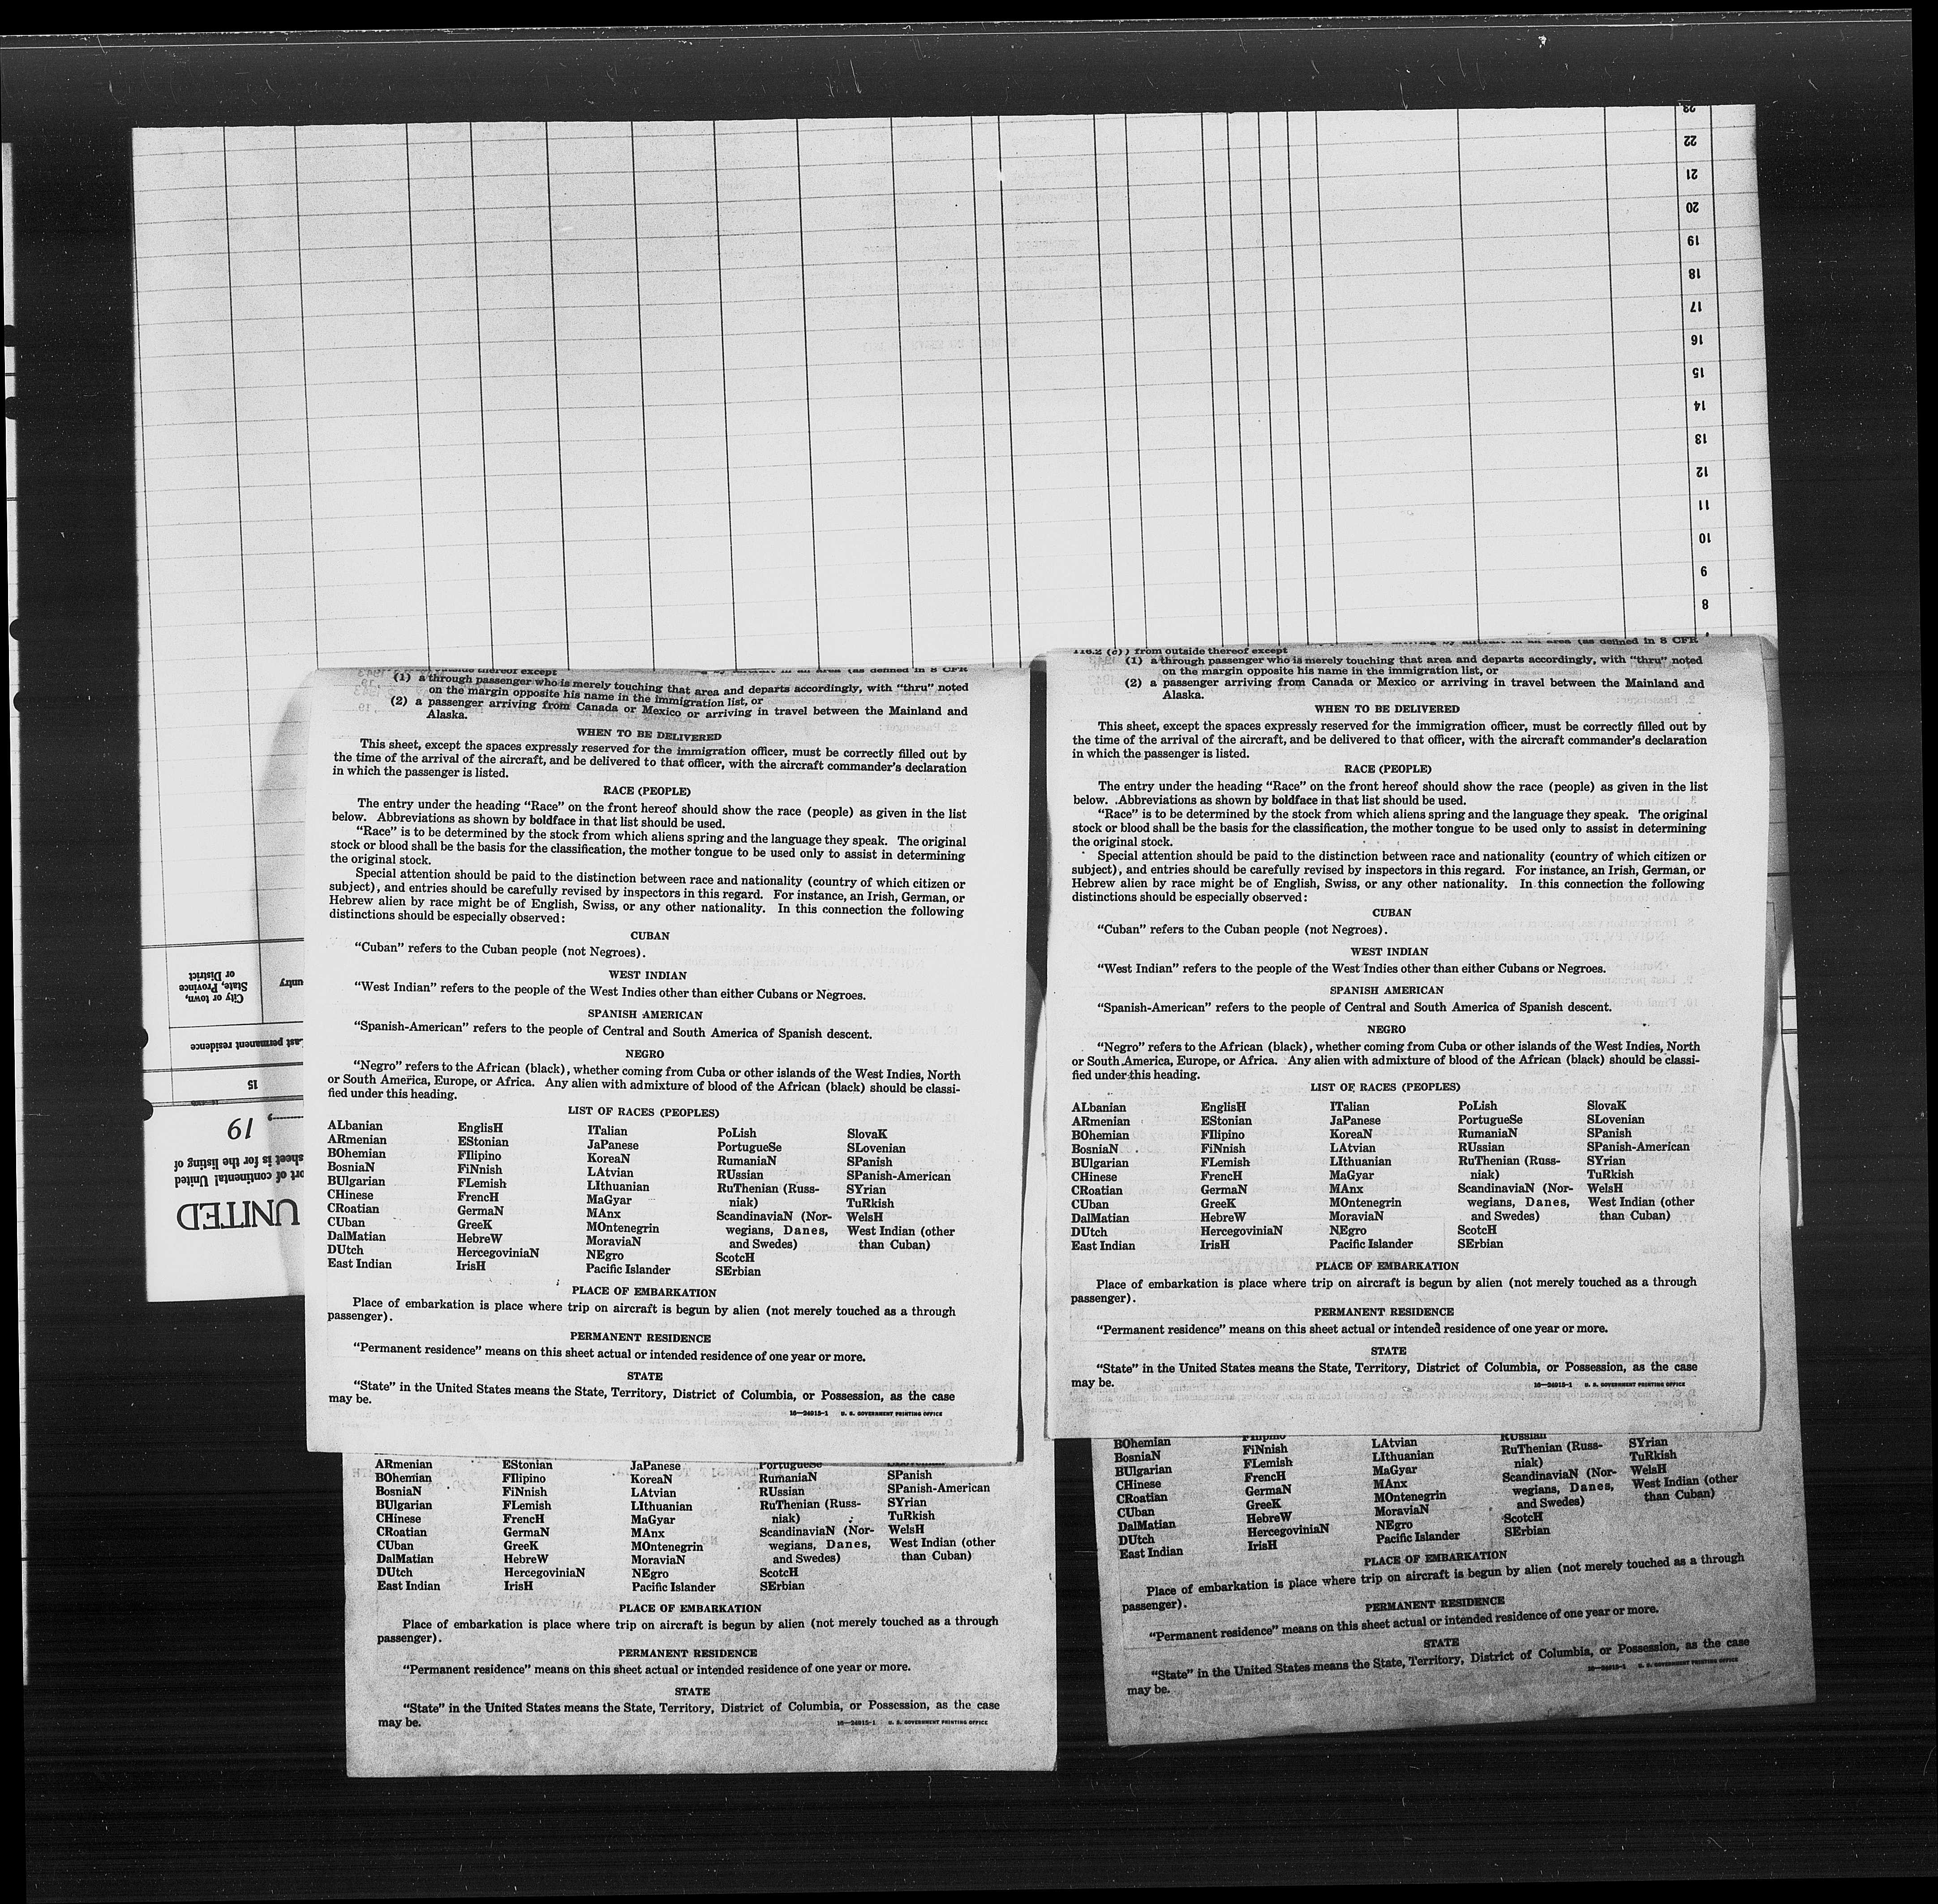 23
22
21
20
19
18
17
16
15
14
13
12
11
10
9
8
City or town,
State, Province
or District
Last permanent residence
15
19
sheet is for the listing of
port of continental United
UNITED
outside thereof except
(1) a through passenger who is merely touching that area and departs accordingly, with “thru” noted
on the margin opposite his name in the immigration list, or
(2) a passenger arriving from Canada or Mexico or arriving in travel between the Mainland and
Alaska.
WHEN TO BE DELIVERED
This sheet, except the spaces expressly reserved for the immigration officer, must be correctly filled out by
the time of the arrival of the aircraft, and be delivered to that officer, with the aircraft commander’s declaration
in which the passenger is listed.
RACE (PEOPLE)
The entry under the heading “Race” on the front hereof should show the race (people) as given in the list
below. Abbreviations as shown by boldface in that list should be used.
“Race” is to be determined by the stock from which aliens spring and the language they speak. The original
stock or blood shall be the basis for the classification, the mother tongue to be used only to assist in determining
the original stock.
Special attention should be paid to the distinction between race and nationality (country of which citizen or
subject), and entries should be carefully revised by inspectors in this regard. For instance, an Irish, German, or
Hebrew alien by race might be of English, Swiss, or any other nationality. In this connection the following
distinctions should be especially observed:
CUBAN
“Cuban” refers to the Cuban people (not Negroes).
WEST INDIAN
“West Indian” refers to the people of the West Indies other than either Cubans or Negroes.
SPANISH AMERICAN
“Spanish-American” refers to the people of Central and South America of Spanish descent.
NEGRO
“Negro” refers to the African (black), whether coming from Cuba or other islands of the West Indies, North
or South America, Europe, or Africa. Any alien with admixture of blood of the African (black) should be classi-
fied under this heading.
LIST OF RACES (PEOPLES)
ALbanian
ARmenian
BOhemian
BosniaN
BUlgarian
CHinese
CRoatian
CUban
DalMatian
DUtch
East Indian
EnglisH
EStonian
FIlipino
FiNnish
FLemish
FrencH
GermaN
GreeK
HebreW
HercegoviniaN
IrisH
ITalian
JaPanese
KoreaN
LAtvian
LIthuanian
MaGyar
MAnx
MOntenegrin
MoraviaN
NEgro
Pacific Islander
PoLish
PortugueSe
RumaniaN
RUssian
RuThenian (Russ-
niak)
ScandinaviaN (Nor-
wegians, Danes,
and Swedes)
ScotcH
SErbian
SlovaK
SLovenian
SPanish
SPanish-American
SYrian
TuRkish
WelsH
West Indian (other
than Cuban)
PLACE OF EMBARKATION
Place of embarkation is place where trip on aircraft is begun by alien (not merely touched as a through
passenger).
PERMANENT RESIDENCE
“Permanent residence” means on this sheet actual or intended residence of one year or more.
STATE
“State” in the United States means the State, Territory, District of Columbia, or Possession, as the case
may be.
16—24915-1 U. S. GOVERNMENT PRINTING OFFICE
arriving by aircraft in an area (as defined in 8 CFR
116.2 (c)) from outside thereof except
(1) a through passenger who is merely touching that area and departs accordingly, with “thru” noted
on the margin opposite his name in the immigration list, or
(2) a passenger arriving from Canada or Mexico or arriving in travel between the Mainland and
Alaska.
WHEN TO BE DELIVERED
This sheet, except the spaces expressly reserved for the immigration officer, must be correctly filled out by
the time of the arrival of the aircraft, and be delivered to that officer, with the aircraft commander’s declaration
in which the passenger is listed.
RACE (PEOPLE)
The entry under the heading “Race” on the front hereof should show the race (people) as given in the list
below. Abbreviations as shown by boldface in that list should be used.
“Race” is to be determined by the stock from which aliens spring and the language they speak. The original
stock or blood shall be the basis for the classification, the mother tongue to be used only to assist in determining
the original stock.
Special attention should be paid to the distinction between race and nationality (country of which citizen or
subject), and entries should be carefully revised by inspectors in this regard. For instance, an Irish, German, or
Hebrew alien by race might be of English, Swiss, or any other nationality. In this connection the following
distinctions should be especially observed:
CUBAN
“Cuban” refers to the Cuban people (not Negroes).
WEST INDIAN
“West Indian” refers to the people of the West Indies other than either Cubans or Negroes.
SPANISH AMERICAN
“Spanish-American” refers to the people of Central and South America of Spanish descent.
NEGRO
“Negro” refers to the African (black), whether coming from Cuba or other islands of the West Indies, North
or South America, Europe, or Africa. Any alien with admixture of blood of the African (black) should be classi-
fied under this heading.
LIST OF RACES (PEOPLES)
ALbanian
ARmenian
BOhemian
BosniaN
BUlgarian
CHinese
CRoatian
CUban
DalMatian
DUtch
East Indian
EnglisH
EStonian
FIlipino
FiNnish
FLemish
FrencH
GermaN
GreeK
HebreW
HercegoviniaN
IrisH
ITalian
JaPanese
KoreaN
LAtvian
LIthuanian
MaGyar
MAnx
MOntenegrin
MoraviaN
NEgro
Pacific Islander
PoLish
PortugueSe
RumaniaN
RUssian
RuThenian (Russ-
niak)
ScandinaviaN (Nor-
wegians, Danes,
and Swedes)
ScotcH
SErbian
SlovaK
SLovenian
SPanish
SPanish-American
SYrian
TuRkish
WelsH
West Indian (other
than Cuban)
PLACE OF EMBARKATION
Place of embarkation is place where trip on aircraft is begun by alien (not merely touched as a through
passenger).
PERMANENT RESIDENCE
“Permanent residence” means on this sheet actual or intended residence of one year or more.
STATE
“State” in the United States means the State, Territory, District of Columbia, or Possession, as the case
may be.
16—24915-1 U. S. GOVERNMENT PRINTING OFFICE
ARmenian
BOhemian
BosniaN
BUlgarian
CHinese
CRoatian
CUban
DalMatian
DUtch
East Indian
EStonian
FIlipino
FiNnish
FLemish
FrencH
GermaN
GreeK
HebreW
HercegoviniaN
IrisH
JaPanese
KoreaN
LAtvian
LIthuanian
MaGyar
MAnx
MOntenegrin
MoraviaN
NEgro
Pacific Islander
PortugueSe
RumaniaN
RUssian
RuThenian (Russ-
niak)
ScandinaviaN (Nor-
wegians, Danes,
and Swedes)
ScotcH
SErbian
SPanish
SPanish-American
SYrian
TuRkish
WelsH
West Indian (other
than Cuban)
PLACE OF EMBARKATION
Place of embarkation is place where trip on aircraft is begun by alien (not merely touched as a through
passenger).
PERMANENT RESIDENCE
“Permanent residence” means on this sheet actual or intended residence of one year or more.
STATE
“State” in the United States means the State, Territory, District of Columbia, or Possession, as the case
may be.
16—24915-1 U. S. GOVERNMENT PRINTING OFFICE
BOhemian
BosniaN
BUlgarian
CHinese
CRoatian
CUban
DalMatian
DUtch
East Indian
FIlipino
FiNnish
FLemish
FrencH
GermaN
GreeK
HebreW
HercegoviniaN
IrisH
LAtvian
LIthuanian
MaGyar
MAnx
MOntenegrin
MoraviaN
NEgro
Pacific Islander
RUssian
RuThenian (Russ-
niak)
ScandinaviaN (Nor-
wegians, Danes,
and Swedes)
ScotcH
SErbian
SYrian
TuRkish
WelsH
West Indian (other
than Cuban)
PLACE OF EMBARKATION
Place of embarkation is place where trip on aircraft is begun by alien (not merely touched as a through
passenger).
PERMANENT RESIDENCE
“Permanent residence” means on this sheet actual or intended residence of one year or more.
STATE
“State” in the United States means the State, Territory, District of Columbia, or Possession, as the case
may be.
16—24915-1 U. S. GOVERNMENT PRINTING OFFICE